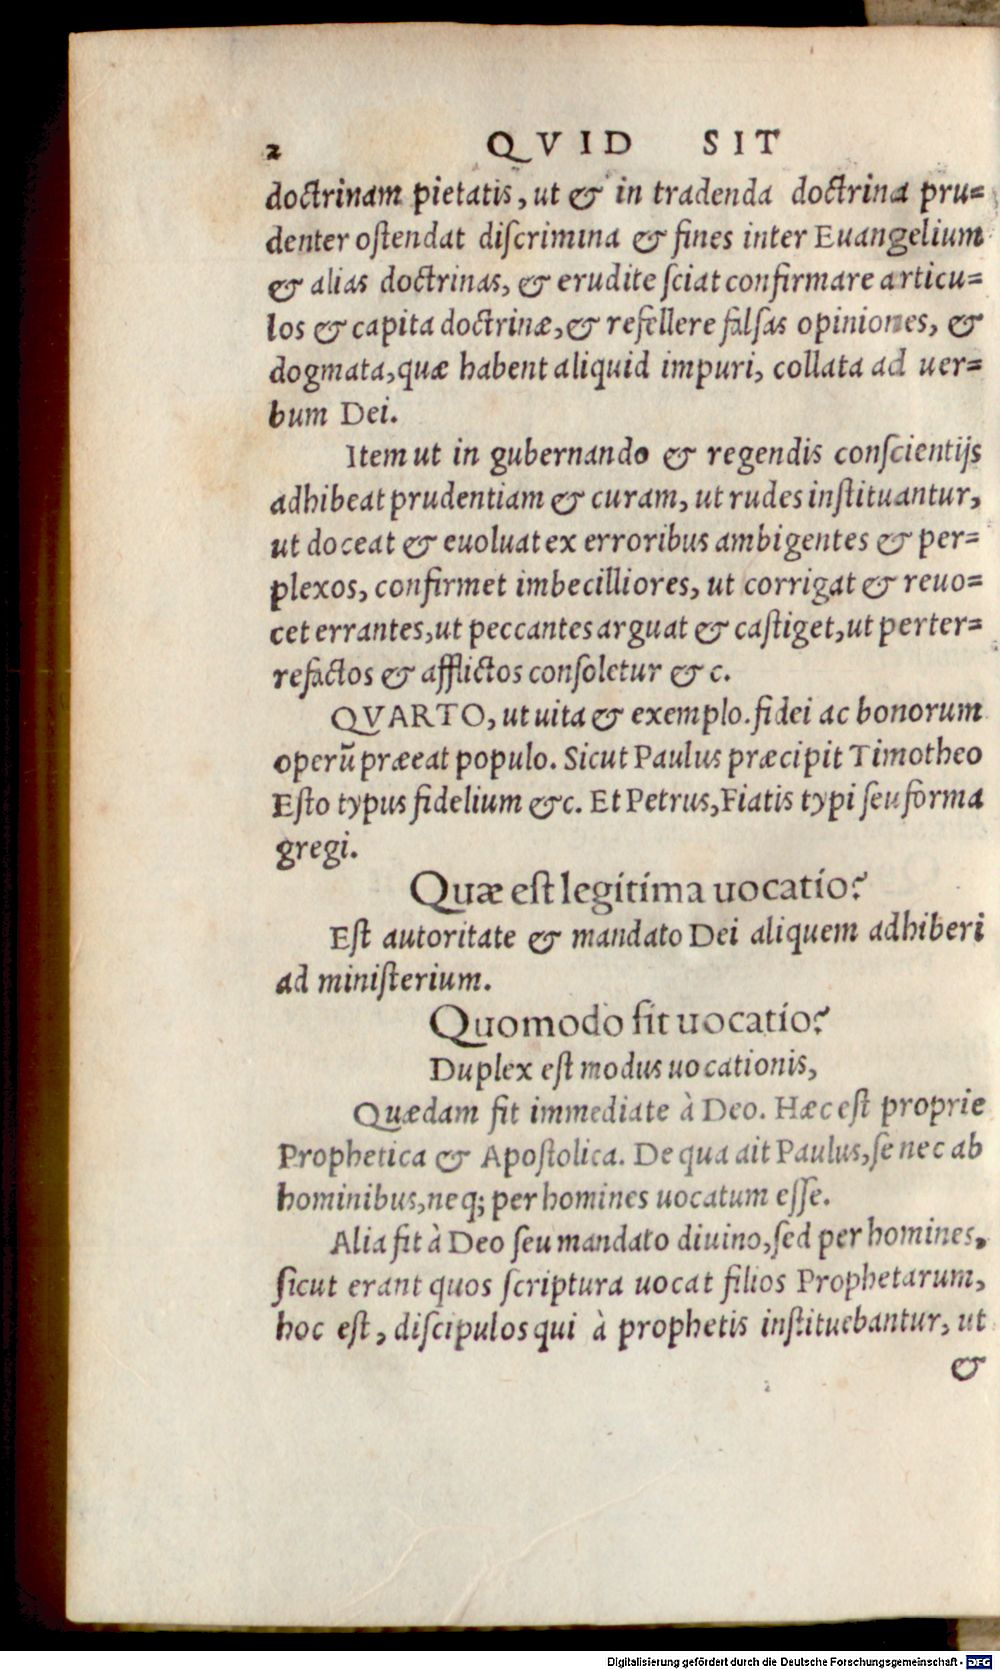 2 QVID SIT
doctrinam pietatis, ut & in tradenda doctrina pru=
denter oſtendat diſcrimina & fines inter Euangelium
& alias doctrinas, & erudite ſciat confirmare articu=
los & capita doctrinæ, & refellere falſas opiniones, &
dogmata, quæ habent aliquid impuri, collata ad uer=
bum Dei.
Item ut in gubernando & regendis conſcientijs
adhibeat prudentiam & curam, ut rudes inſtituantur,
ut doceat & euoluat ex erroribus ambigentes & per=
plexos, confirmet imbecilliores, ut corrigat & reuo=
cet errantes, ut peccantes arguat & caſtiget, ut perter=
refactos & afflictos conſoletur & c.
QVARTO, ut uita & exemplo. fidei ac bonorum
operū præeat populo. Sicut Paulus præcipit Timotheo
Eſto typus fidelium &c. Et Petrus, Fiatis typi ſeu forma
gregi.
Quæ eſt legitima uocatio?
Eſt autoritate & mandato Dei aliquem adhiberi
ad miniſterium.
Quomodo fit uocatio?
Duplex eſt modus uocationis,
Quædam fit immediate à Deo. Hæc eſt proprie
Prophetica & Apoſtolica. De qua ait Paulus, ſe nec ab
hominibus, neq; per homines uocatum eſſe.
Alia fit à Deo ſeu mandato diuino, ſed per homines,
ſicut erant quos ſcriptura uocat filios Prophetarum,
hoc eſt, diſcipulos qui à prophetis inſtituebantur, ut
&
Digitalisierung gefördert durch die Deutsche Forschungsgemeinschaft - DFG